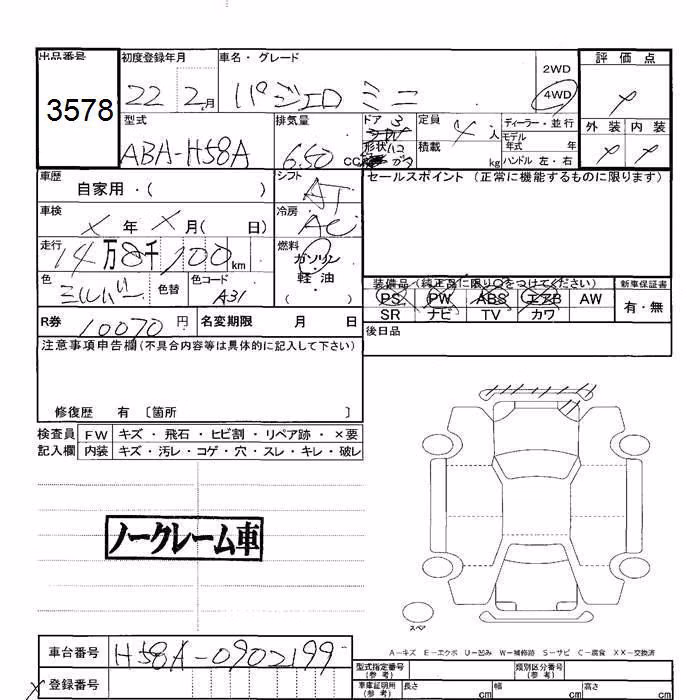 出品番号 3578
初度登録年月 22 2月
車名・グレード パジェロ ミニ
2WD
4WD
評価点
外装 内装
型式 ABA-H58A
排気量 6.50 cc
ドア 3
形状 ハコ
定員 4人
積載 kg
ディーラー・並行
モデル年式 年
ハンドル 左・右
車歴 自家用・( )
シフト AT
セールスポイント (正常に機能するものに限ります)
車検 X年 X月( 日)
冷房 AC
走行 14万8千100km
燃料 ガソリン
軽油
( )
色 シルバー 色替 色コード A31
装備品(純正品に限り○をつけてください) 新車保証書
PS PW ABS エアB AW
SR ナビ TV カワ
有・無
R券 10070円 名変期限 月 日
後日品
注意事項申告欄(不具合内容等は具体的に記入して下さい)
修復歴 有 〔箇所 〕
検査員 FW キズ・飛石・ヒビ割・リペア跡・×要
記入欄 内装 キズ・汚レ・コゲ・穴・スレ・キレ・破レ
ノークレーム車
スペア
A-キズ E-エクボ U-凹み W-補修跡 S-サビ C-腐食 XX-交換済
車台番号 H58A-0902199
X 登録番号
型式指定番号(参考) 類別区分番号(参考)
車庫証明用(参考) 長さ cm 幅 cm 高さ cm